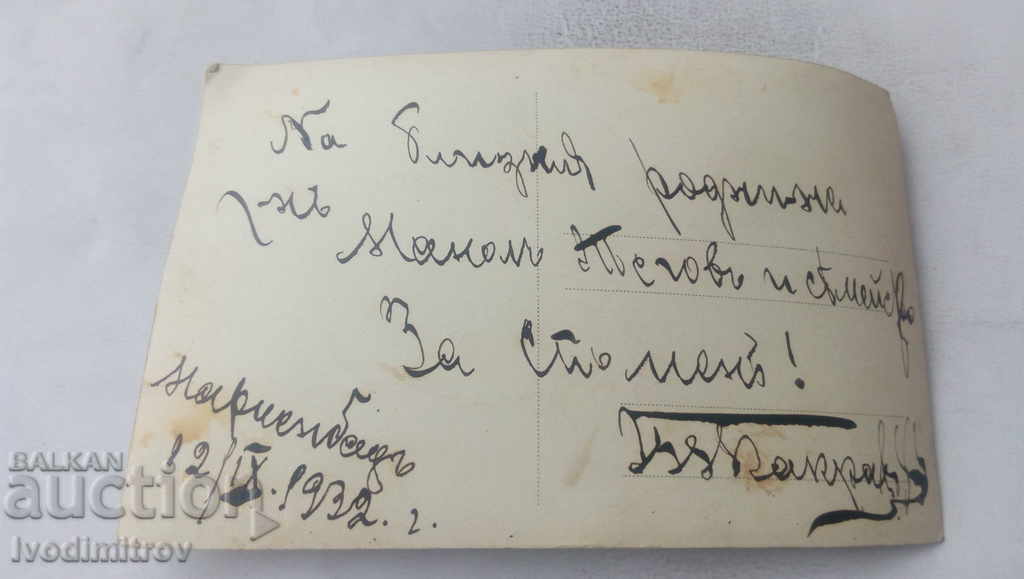 На близкия роднина
г-нъ Маноль и семейство
За споменъ!
Мариенбадъ
12/IX.1932 г.
BALKAN
auction
Ivodimitrov